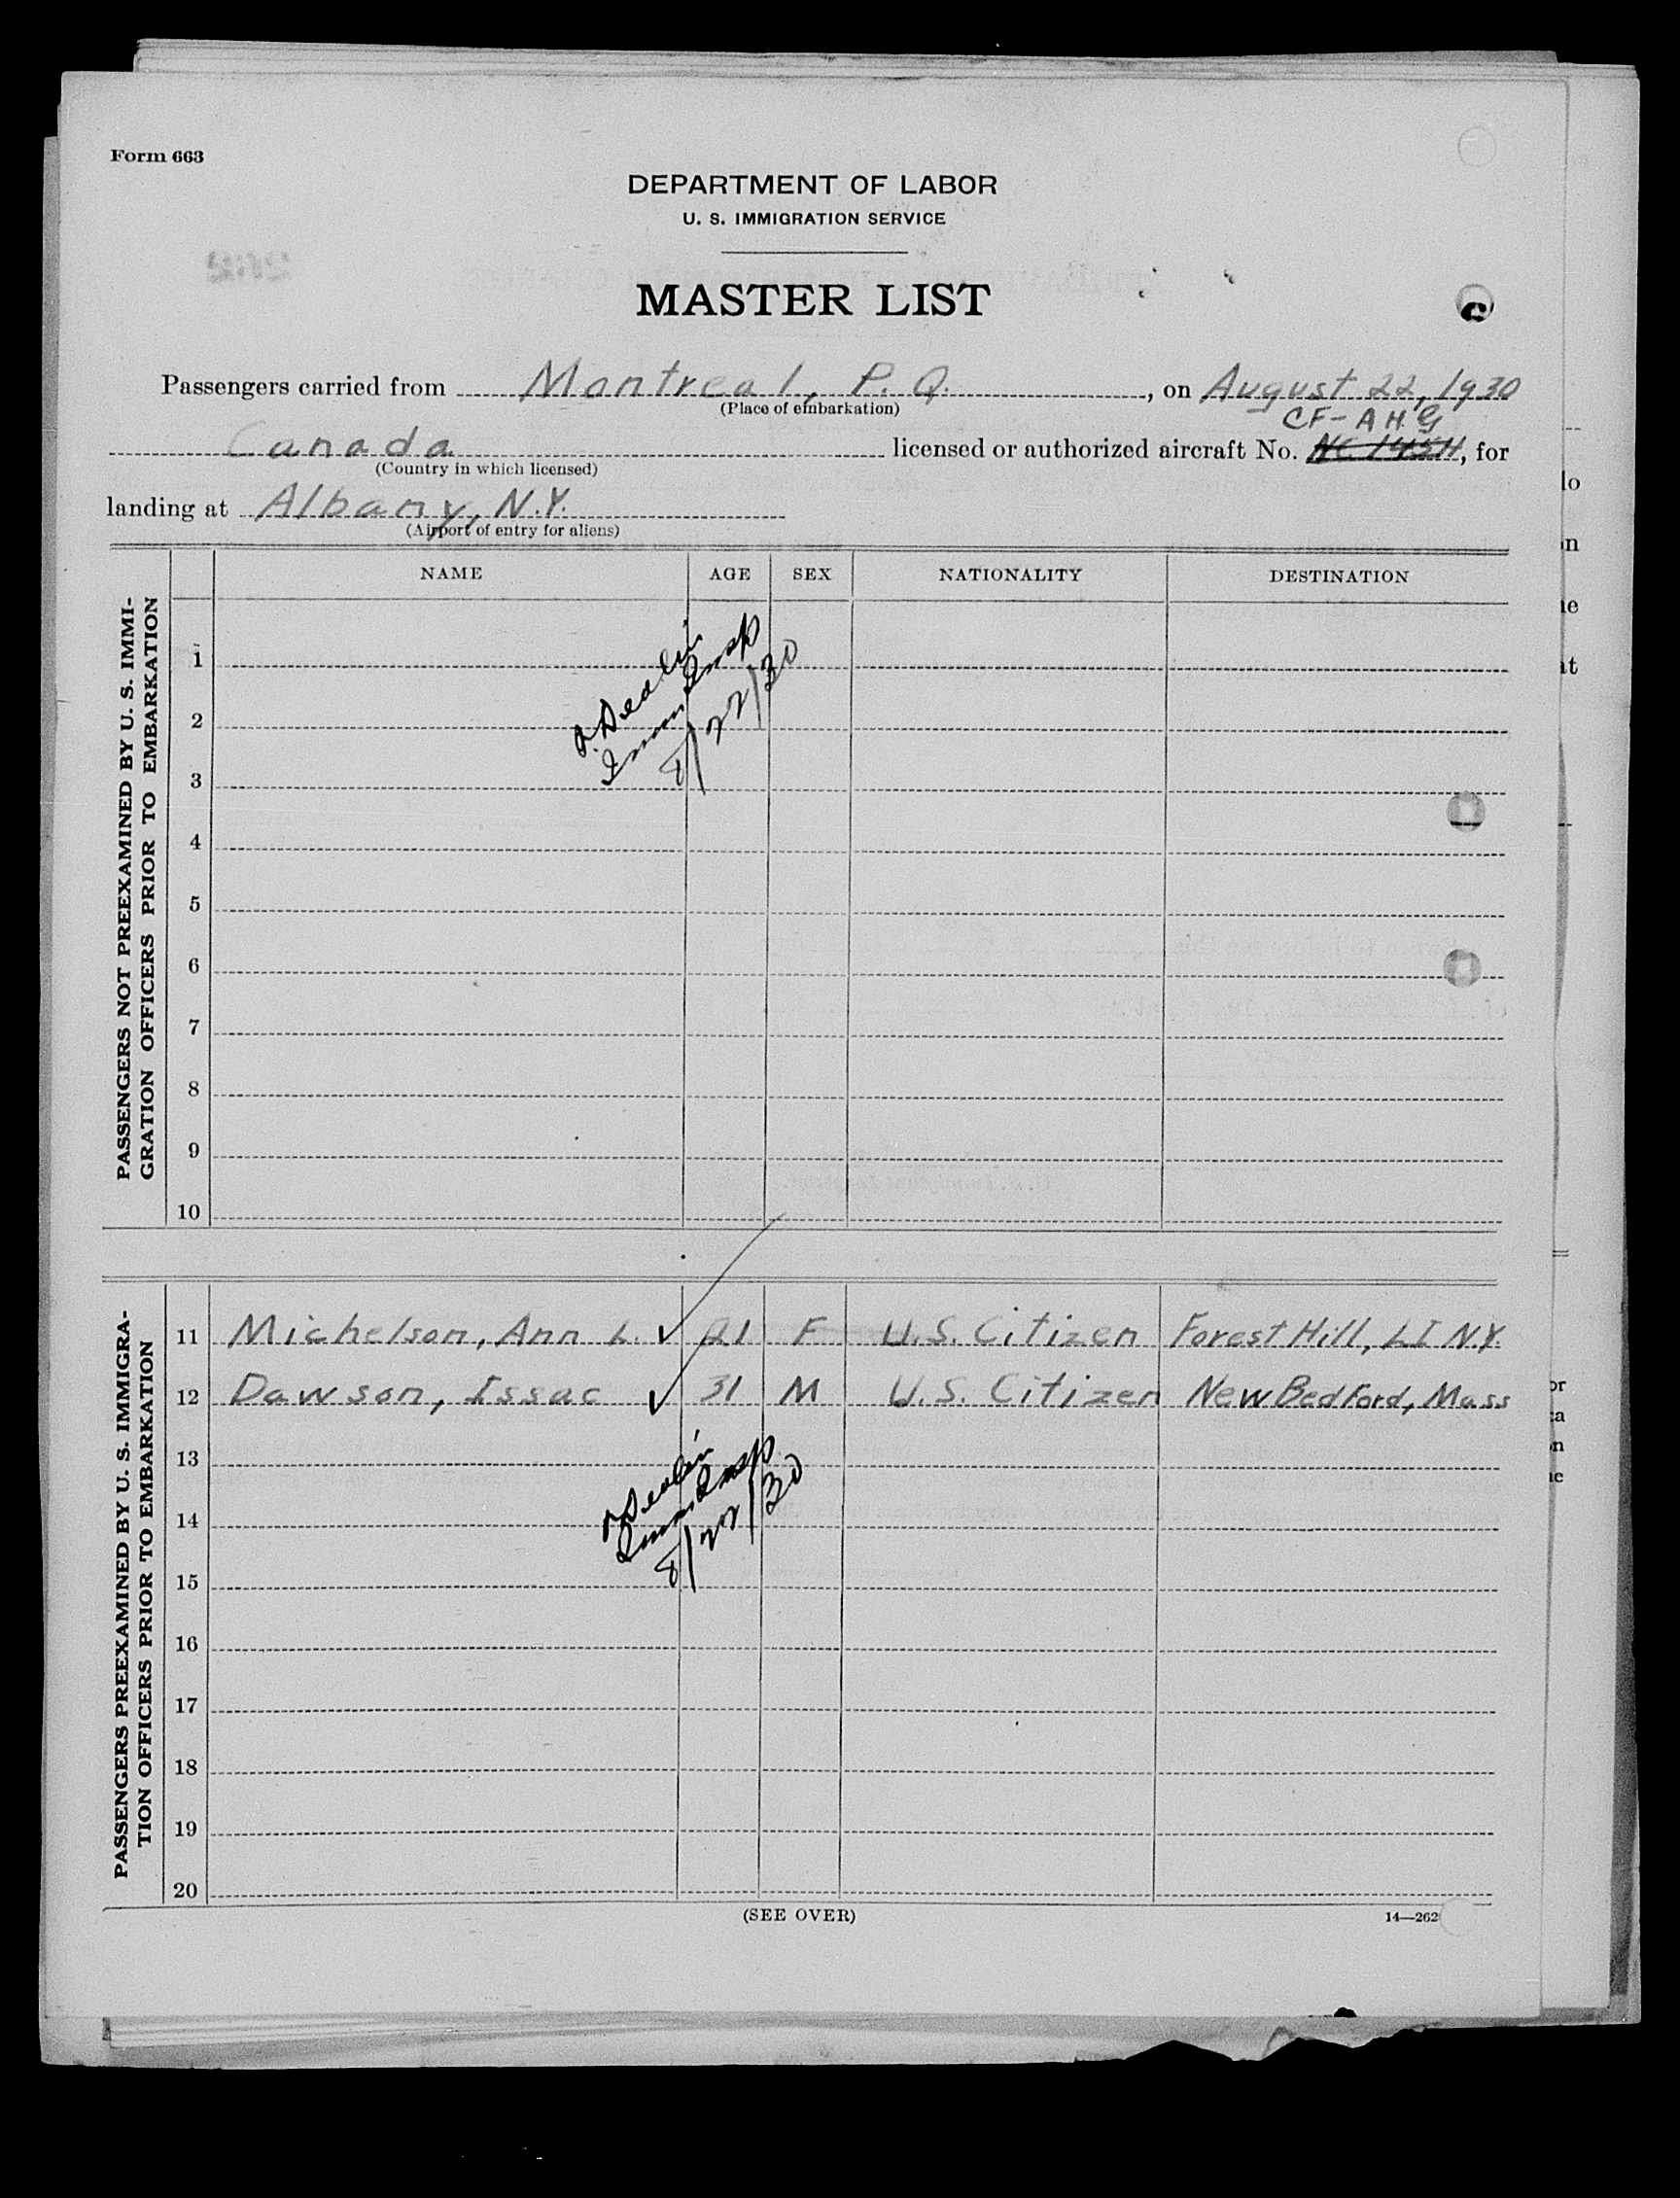 Form 663
DEPARTMENT OF LABOR
U. S. IMMIGRATION SERVICE
MASTER LIST
Passengers carried from Montreal, P. Q. , on August 22, 1930
(Place of embarkation)
CF-AHG
Canada licensed or authorized aircraft No. NC 145H, for
(Country in which licensed)
landing at Albany, N.Y.
(Airport of entry for aliens)
NAME AGE SEX NATIONALITY DESTINATION
PASSENGERS NOT PREEXAMINED BY U. S. IMMI-
GRATION OFFICERS PRIOR TO EMBARKATION
1
2
3
4
5
6
7
8
9
10
Imm Insp
8/22/30
PASSENGERS PREEXAMINED BY U. S. IMMIGRA-
TION OFFICERS PRIOR TO EMBARKATION
11 Michelson, Ann L. ✓ 21 F U.S. Citizen Forest Hill, LI N.Y.
12 Dawson, Issac ✓ 31 M U.S. Citizen New Bedford, Mass
13
14
15
16
17
18
19
20
Imm Insp
8/22/30
(SEE OVER)
14—262